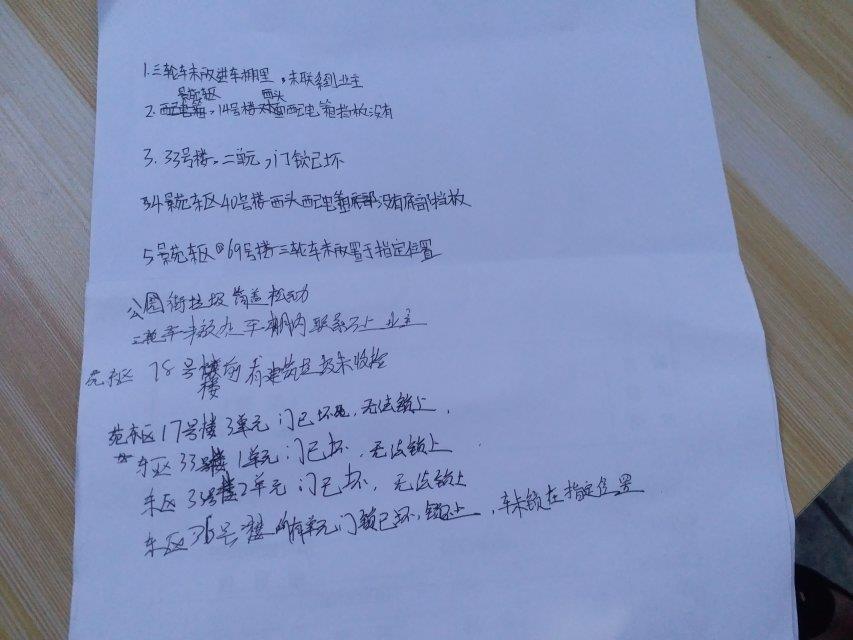 1.三轮车未放进车棚里,未联系到业主
景苑东区 西头
2.西配电箱,14号楼西配电箱挡板没有
3.33号楼,二单元,门锁已坏
34景苑东区40号楼西头西配电箱底部没有底部挡板
5景苑东区69号楼三轮车未放置于指定位置
公园街垃圾筒盖松动
三轮车未放在车棚内联系不上业主
苑东区 78号楼前有建筑垃圾未收捡
楼
苑东区17号楼3单元门已坏,无法锁上.
东区33号楼1单元门已坏,无法锁上
东区35号楼2单元门已坏,无法锁上
东区36号楼所有单元门锁已坏,锁不上,车未锁在指定位置